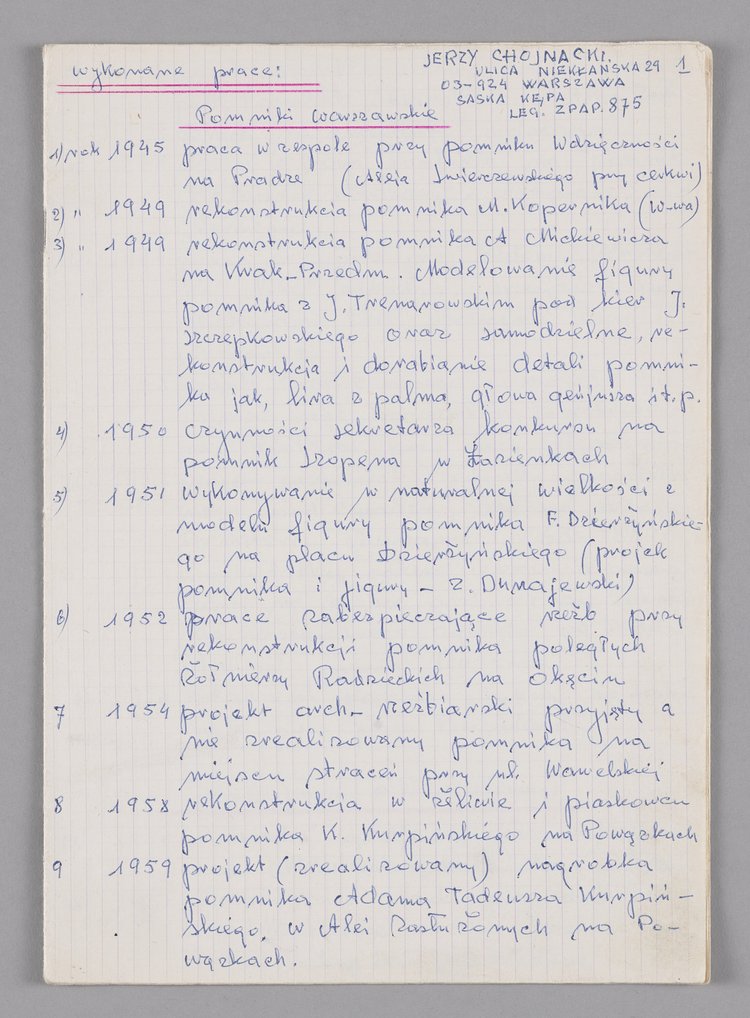 JERZY CHOJNACKI.
ULICA NIEKŁAŃSKA 29
03-924 WARSZAWA
SASKA KĘPA
LEG. ZPAP. 875
1
wykonane prace:
Pomniki warszawskie
1) rok 1945 praca w zespole przy pomniku Wdzięczności
na Pradze (Aleja Świerczewskiego przy cerkwi)
2) " 1949 rekonstrukcia pomnika M. Kopernika (W-wa)
3) " 1949 rekonstrukcia pomnika A Mickiewicza
na Krak_Przedm. Modelowanie figury
pomnika z J. Trenarowskim pod kier J.
Szczepkowskiego oraz samodzielne, re-
konstrukcja i dorabianie detali pomni-
ka jak, lira z palmą, głowa genjusza i t. p.
4) 1950 czynności sekretarza konkursu na
pomnik Szopena w Łazienkach
5) 1951 wykonywanie w naturalnej wielkości z
modelu figury pomnika F. Dzierżyńskie-
go na placu Dzierżyńskiego (projek
pomnika i figury – Z. Dunajewski)
6) 1952 prace zabezpieczające rzeźb przy
rekonstrukcji pomnika poległych
Żołnierzy Radzieckich na Okęciu
7 1954 projekt arch_ rzeźbiarski przyjęty a
nie zrealizowany pomnika na
miejscu straceń przy ul. Wawelskiej
8 1958 rekonstrukcja w żeliwie i piaskowcu
pomnika K. Kurpińskiego na Powązkach
9 1959 projekt (zrealizowany) nagrobka
pomnika Adama Tadeusza Kurpiń-
skiego. w Alei Zasłużonych na Po-
wązkach.